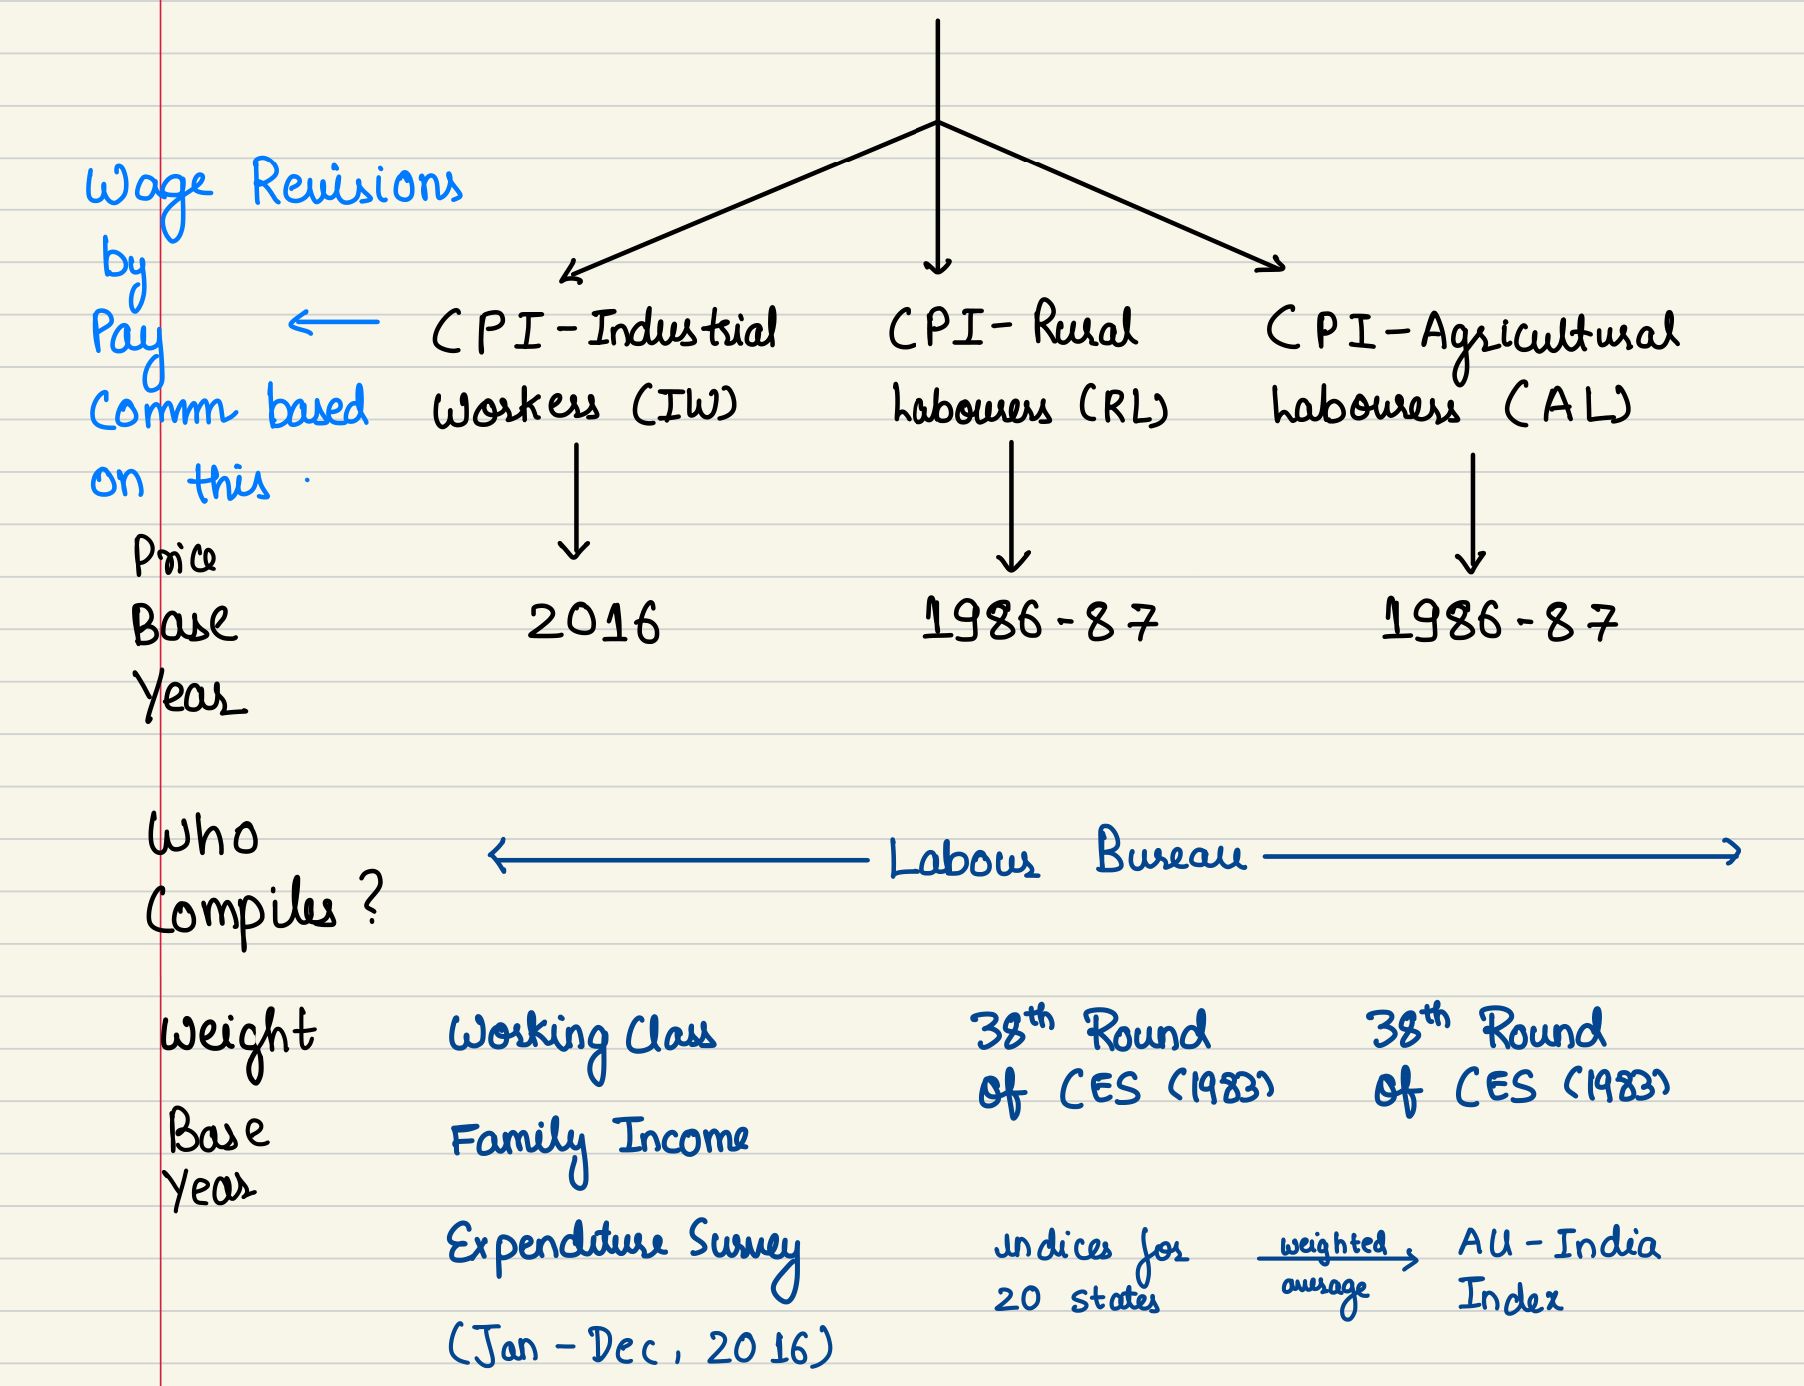 Wage Revisions
by
Pay
Comm based
on this.
CPI - Industrial
Workers (IW)
CPI - Rural
Labourers (RL)
CPI - Agricultural
Labourers (AL)
Price
Base
Year
2016
1986-87
1986-87
Who
Compiles?
Labour Bureau
Weight
Base
Year
Working Class
Family Income
Expenditure Survey
(Jan - Dec, 2016)
38th Round
of CES (1983)
38th Round
of CES (1983)
indices for
20 states
weighted
average
All - India
Index